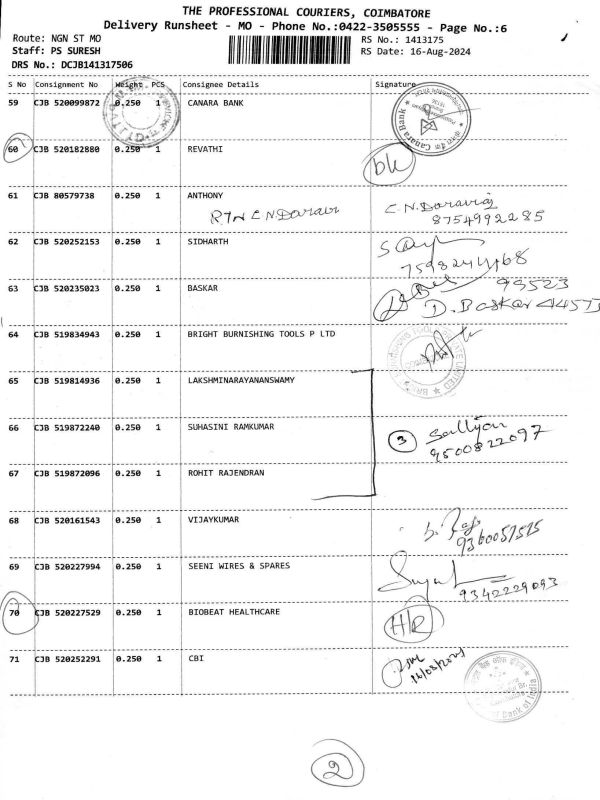 THE PROFESSIONAL COURIERS, COIMBATORE
Delivery Runsheet - MO - Phone No.:0422-3505555 - Page No.:6
Route: NGN ST MO
RS No.: 1413175
Staff: PS SURESH
RS Date: 16-Aug-2024
DRS No.: DCJB141317506
S No Consignment No Weight PCS Consignee Details Signature
59 CJB 520099872 0.250 1 CANARA BANK
Canara Bank
60 CJB 520182880 0.250 1 REVATHI
61 CJB 80579738 0.250 1 ANTHONY
8754992285
62 CJB 520252153 0.250 1 SIDHARTH
63 CJB 520235023 0.250 1 BASKAR
D. Baskar
64 CJB 519834943 0.250 1 BRIGHT BURNISHING TOOLS P LTD
65 CJB 519814936 0.250 1 LAKSHMINARAYANANSWAMY
66 CJB 519872240 0.250 1 SUHASINI RAMKUMAR
3
9500822097
67 CJB 519872096 0.250 1 ROHIT RAJENDRAN
68 CJB 520161543 0.250 1 VIJAYKUMAR
69 CJB 520227994 0.250 1 SEENI WIRES & SPARES
9342229093
70 CJB 520227529 0.250 1 BIOBEAT HEALTHCARE
71 CJB 520252291 0.250 1 CBI
Bank of India
2